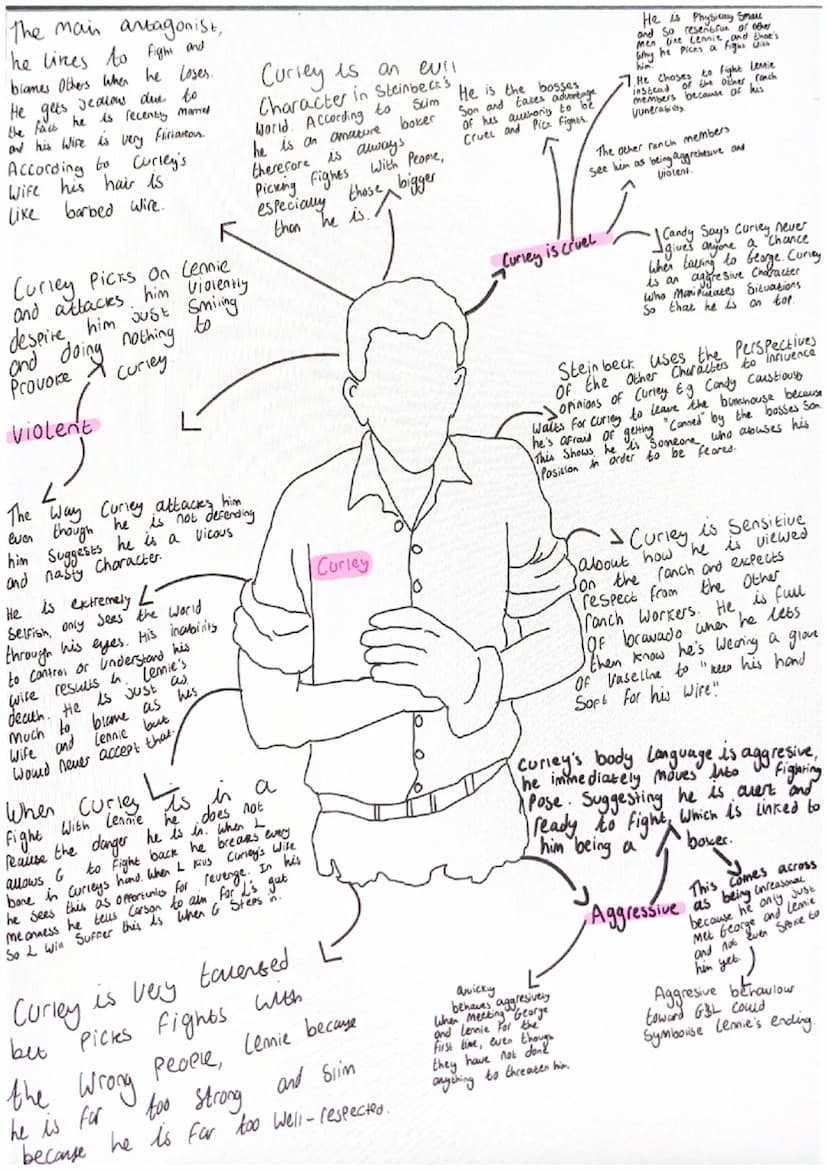 The main antagonist,
he likes to fight and
blames others when he loses.
He gets jealous due to
the fact he is recently married
and his wife is very flirtatious.
According to Curley's
wife his hair is
like barbed wire.
Curley is an evil
Character in Steinbeck's
World. According to Slim
he is an amature boxer
therefore is always
Picking fights with People,
especially those bigger
than he is.
He is the bosses
Son and takes advantage
of his authority to be
Cruel and Pick fights.
He is Physically Small
and so resentful of other
men like Lennie, and that's
why he Picks a fight with
him.
He choses to fight Lennie
instead of the other ranch
members because of his
vunerability.
The other ranch members
see him as being aggresive and
violent.
Curley is cruel
Candy Says Curley never
gives anyone a chance
When talking to George. Curley
is an aggresive Character
Who Manipulates Situations
So that he is on top.
Curley Picks on Lennie
and attacks him violently
despire him just smiling
and doing nothing to
Provoke Curley.
Violent
The way Curley attacks him
even though he is not defending
him Suggests he is a vicous
and nasty Character.
Steinbeck uses the Perspectives
Of the Other Characters to influence
opinions of Curley Eg Candy Caustiously
Waits for Curley to leave the bunkhouse because
he's afraid of getting "Canned" by the bosses Son.
This Shows he is Someone who abuses his
Position in order to be feared.
Curley
Curley is Sensitive
about how he is viewed
On the ranch and expects
respect from the Other
ranch Workers. He is full
Of bravado when he lets
them know he's wearing a glove
Of Vaseline to "keep his hand
Soft for his wife."
He is extremely
Selfish, only sees the World
through his eyes. His inability
to Control or Understand his
wife results in Lennie's
death. He is just as
Much to blame as his
Wife and Lennie but
Would never accept that.
When Curley is in a
fight With Lennie he does not
realise the danger he is in. When L
allows G to fight back he breaks every
bone in Curleys hand. When L kills Curley's Wife
he sees this as opportunity for revenge. In his
meanness he tells Carson to aim for L's gut
So L Will Suffer this is When G Steps in.
Curley's body language is aggresive,
he immediately Moves into a Fighting
Pose. Suggesting he is alert and
ready to fight, Which is linked to
him being a boxer.
Aggressive
This comes across
as being unreasonal
because he only just
Met George and Lennie
and not even Spoke to
him yet.
Aggresive behaviour
toward G&L Could
Symbolise Lennie's ending.
Quicky
behaves aggresively
When Meeting George
and Lennie for the
first time, even though
they have not done
anything to threaten him.
Curley is very talented
but Picks Fights with
the Wrong People, Lennie because
he is far too Strong and Slim
because he is far too Well-respected.